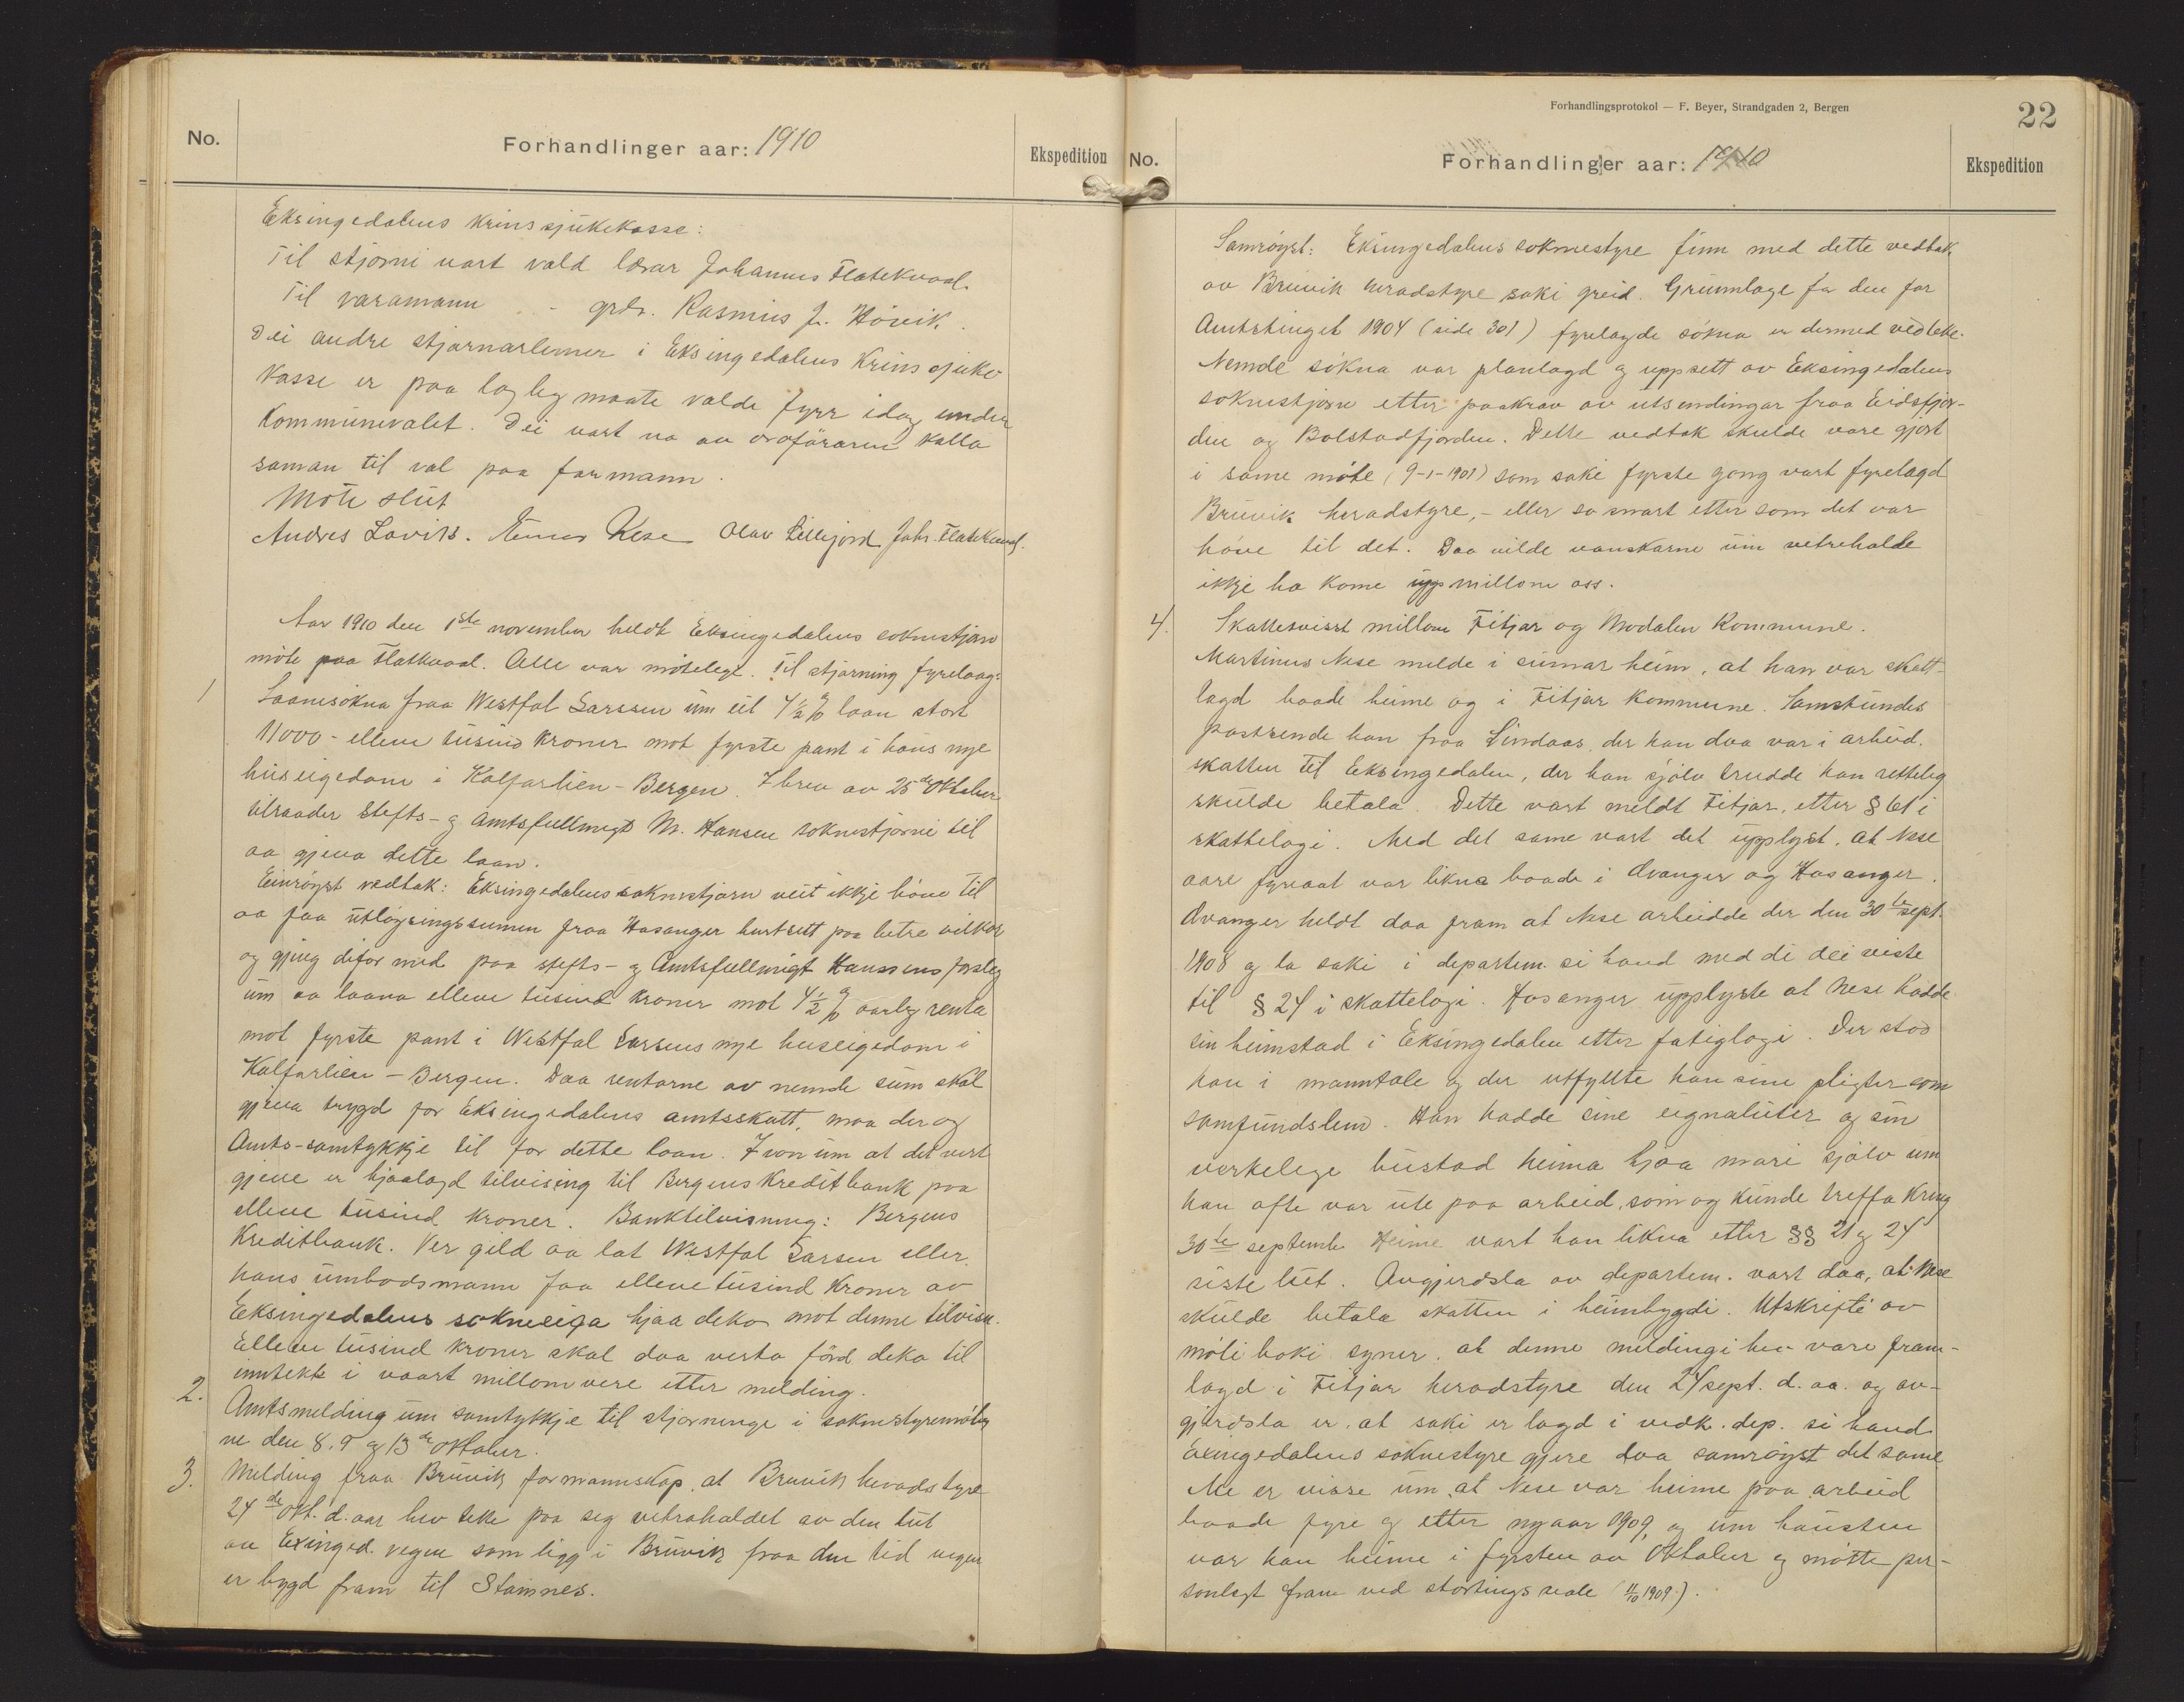 No.
Forhandlinger aar: 1910
Ekspedition
Eksingedalens krinssjukekasse:
Til stjorni vart vald lærar Johannes Flatekvaal.
Til varamann - grdr. Rasmus J. Hövik.
Dei andre stjornarlemer i Eksingedalens Krinssjuke
kasse er paa logleg maate valde fyrr idag under
Kommunevalet. Dei vart no av ordföraren kalla
saman til val paa formann.
Möte slut
Andres Lavik. Nese Olav Lillejord Johs. Flatekvaal.
Aar 1910 den 1ste november heldt Eksingedalens soknestjorn
möte paa Flatkvaal. Alle var mötelege. Til stjorning fyrelaag:
1 Laanesökna fraa Westfal Larssen um eit 4 1/2 % laan stort
11000 - elleve tusind kroner mot fyrste pant i hans nye
huseigedom i Kalfarlien - Bergen. I brev av 25de Oktober
tilraader Stefts- og Amtsfullmegt M. Hansen soknestjorni til
aa gjeva dette laan.
Einröyst vedtak: Eksingedalens soknestjorn veit ikkje höve til
aa faa utlöysingssumen fraa Hosanger burtsett paa betre vilkor
og gjeng difor med paa stefts- og Amtsfullmegt Hanssens forslag
um aa laana elleve tusind kroner mot 4 1/2 % aarleg renta
mot fyrste pant i Westfal Larsens nye huseigedom i
Kalfarlien - Bergen. Daa rentorne av nemde sum skal
gjeva trygd for Eksingedalens amtsskatt, maa der og
Amts-samtykkje til for dette laan. I von um at det vert
gjeve er hjaalagd tilvising til Bergens Kreditbank paa
elleve tusind kroner. Banktilvisning: Bergens
Kreditbank. Ver gild aa lat Westfal Larsen eller
hans umbodsmann faa elleve tusind kroner av
Eksingedalens sokneeiga hjaa dekor mot denne tilvisn.
Elleve tusind kroner skal daa verta förd deko til
inntekt i vaart millomvere etter melding.
2. Amtsmelding um samtykkje til stjorninge i soknestyremöter
ne den 8. 9 og 13de Oktober.
3. Melding fraa Bruvik formannskap, at Bruvik heradstyre
24de Okt. d. aar hev teke paa seg vetrahaldet av den lut
av Exinged. vegen som ligg i Bruvik fraa den tid vegen
er bygd fram til Stamnes.
Forhandlingsprotokol — F. Beyer, Strandgaden 2, Bergen
22
No.
Forhandlinger aar: 1910
Ekspedition
Samröyst: Eksingedalens soknestyre finn med dette vedtak
av Bruvik heradstyre saki greid. Grunnlage for den for
Amtstinget 1904 (side 301) fyrelagde sökna er dermed vedteke.
Nemde sökna var planlagd og uppsett av Eksingedalens
soknestjorn etter paakrav av utsendingar fraa Eidsfjor-
den og Bolstadfjorden. Dette vedtak skulde vore gjort
i same möte (9-1-1901) som saki fyrste gong vart fyrelagd
Bruvik heradstyre, - eller so snart etter som det var
höve til det. Daa vilde vanskarne um vetrehalde
ikkje ha kome upp millom oss.
4. Skattesvist millom Fitjar og Modalen Kommune.
Martinus Nese melde i sumar heim, at han var skatt-
lagd baade heime og i Fitjar kommune. Samstundes
postsende han fraa Lindaas, der han daa var i arbeid,
skatten til Eksingedalen, der han sjölv trudde han retteleg
skulde betala. Dette vart meldt Fitjar, etter § 61 i
skattelogi. Med det same vart det upplyst, at Nese
aare fyreaat var likna baade i Avanger og Hosanger.
Avanger heldt daa fram at Nese arbeidde der den 30te sept.
1908 og la saki i departem. si hand med di dei viste
til § 24 i skattelogi. Hosanger upplyste at Nese hadde
sin heimstad i Eksingedalen etter fatiglogi. Der stod
han i manntale og der utfyllte han sine pligter som
samfundslem. Han hadde sine eignaluter og sin
verkelege bustad heima hjaa mori sjölv um
han ofte var ute paa arbeid, som og kunde treffa kring
30te septemb. Heime vart han likna etter §§ 21 og 24
siste lut. Avgjerdsla av departem. vart daa, at Nese
skulde betala skatten i heimbygdi. Utskrifti av
mötiboki syner, at denne meldingi hev vore fram-
lagd i Fitjar heradstyre den 24 sept. d. aa. og av-
gjerdsla er, at saki er lagd i vedk. dep. si hand.
Exingedalens soknestyre gjere daa samröyst det same
Me er visse um, at Nese var heime paa arbeid
baade fyre og etter nyaar 1909, og um hausten
var han heime i fyrsten av Oktober og mötte per-
sonlegt fram ved stortingsvale (11/10 1909).